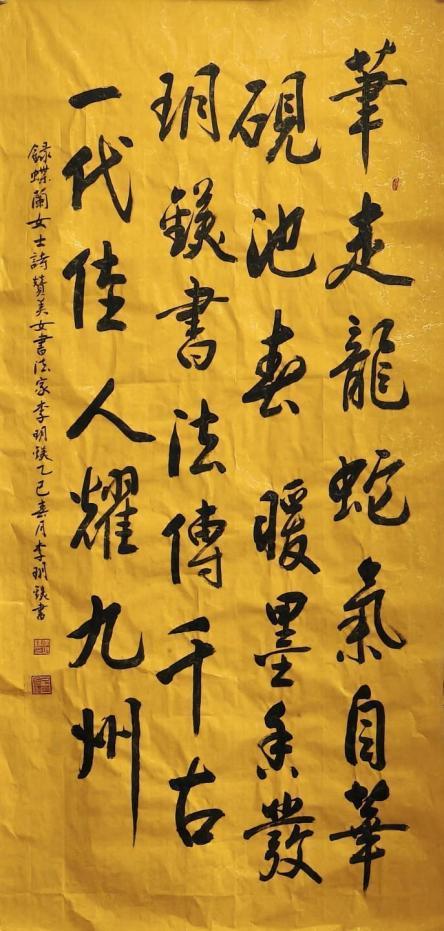 筆走龍蛇氣自華
硯池春暖墨香發
玥鎂書法傳千古
一代佳人耀九州
録蝶蘭女士詩贊美女書法家李玥鎂乙巳春月李玥鎂書